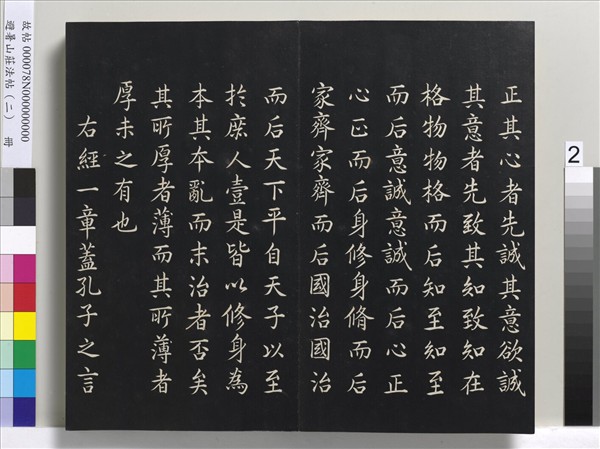 正其心者先誠其意欲誠
其意者先致其知致知在
格物物格而后知至知至
而后意誠意誠而后心正
心正而后身修身脩而后
家齊家齊而后國治國治
而后天下平自天子以至
扵庶人壹是皆以修身為
本其本亂而末治者否矣
其所厚者薄而其所薄者
厚未之有也
右經一章蓋孔子之言
故帖 000078N000000000
避暑山莊法帖(二) 冊
2